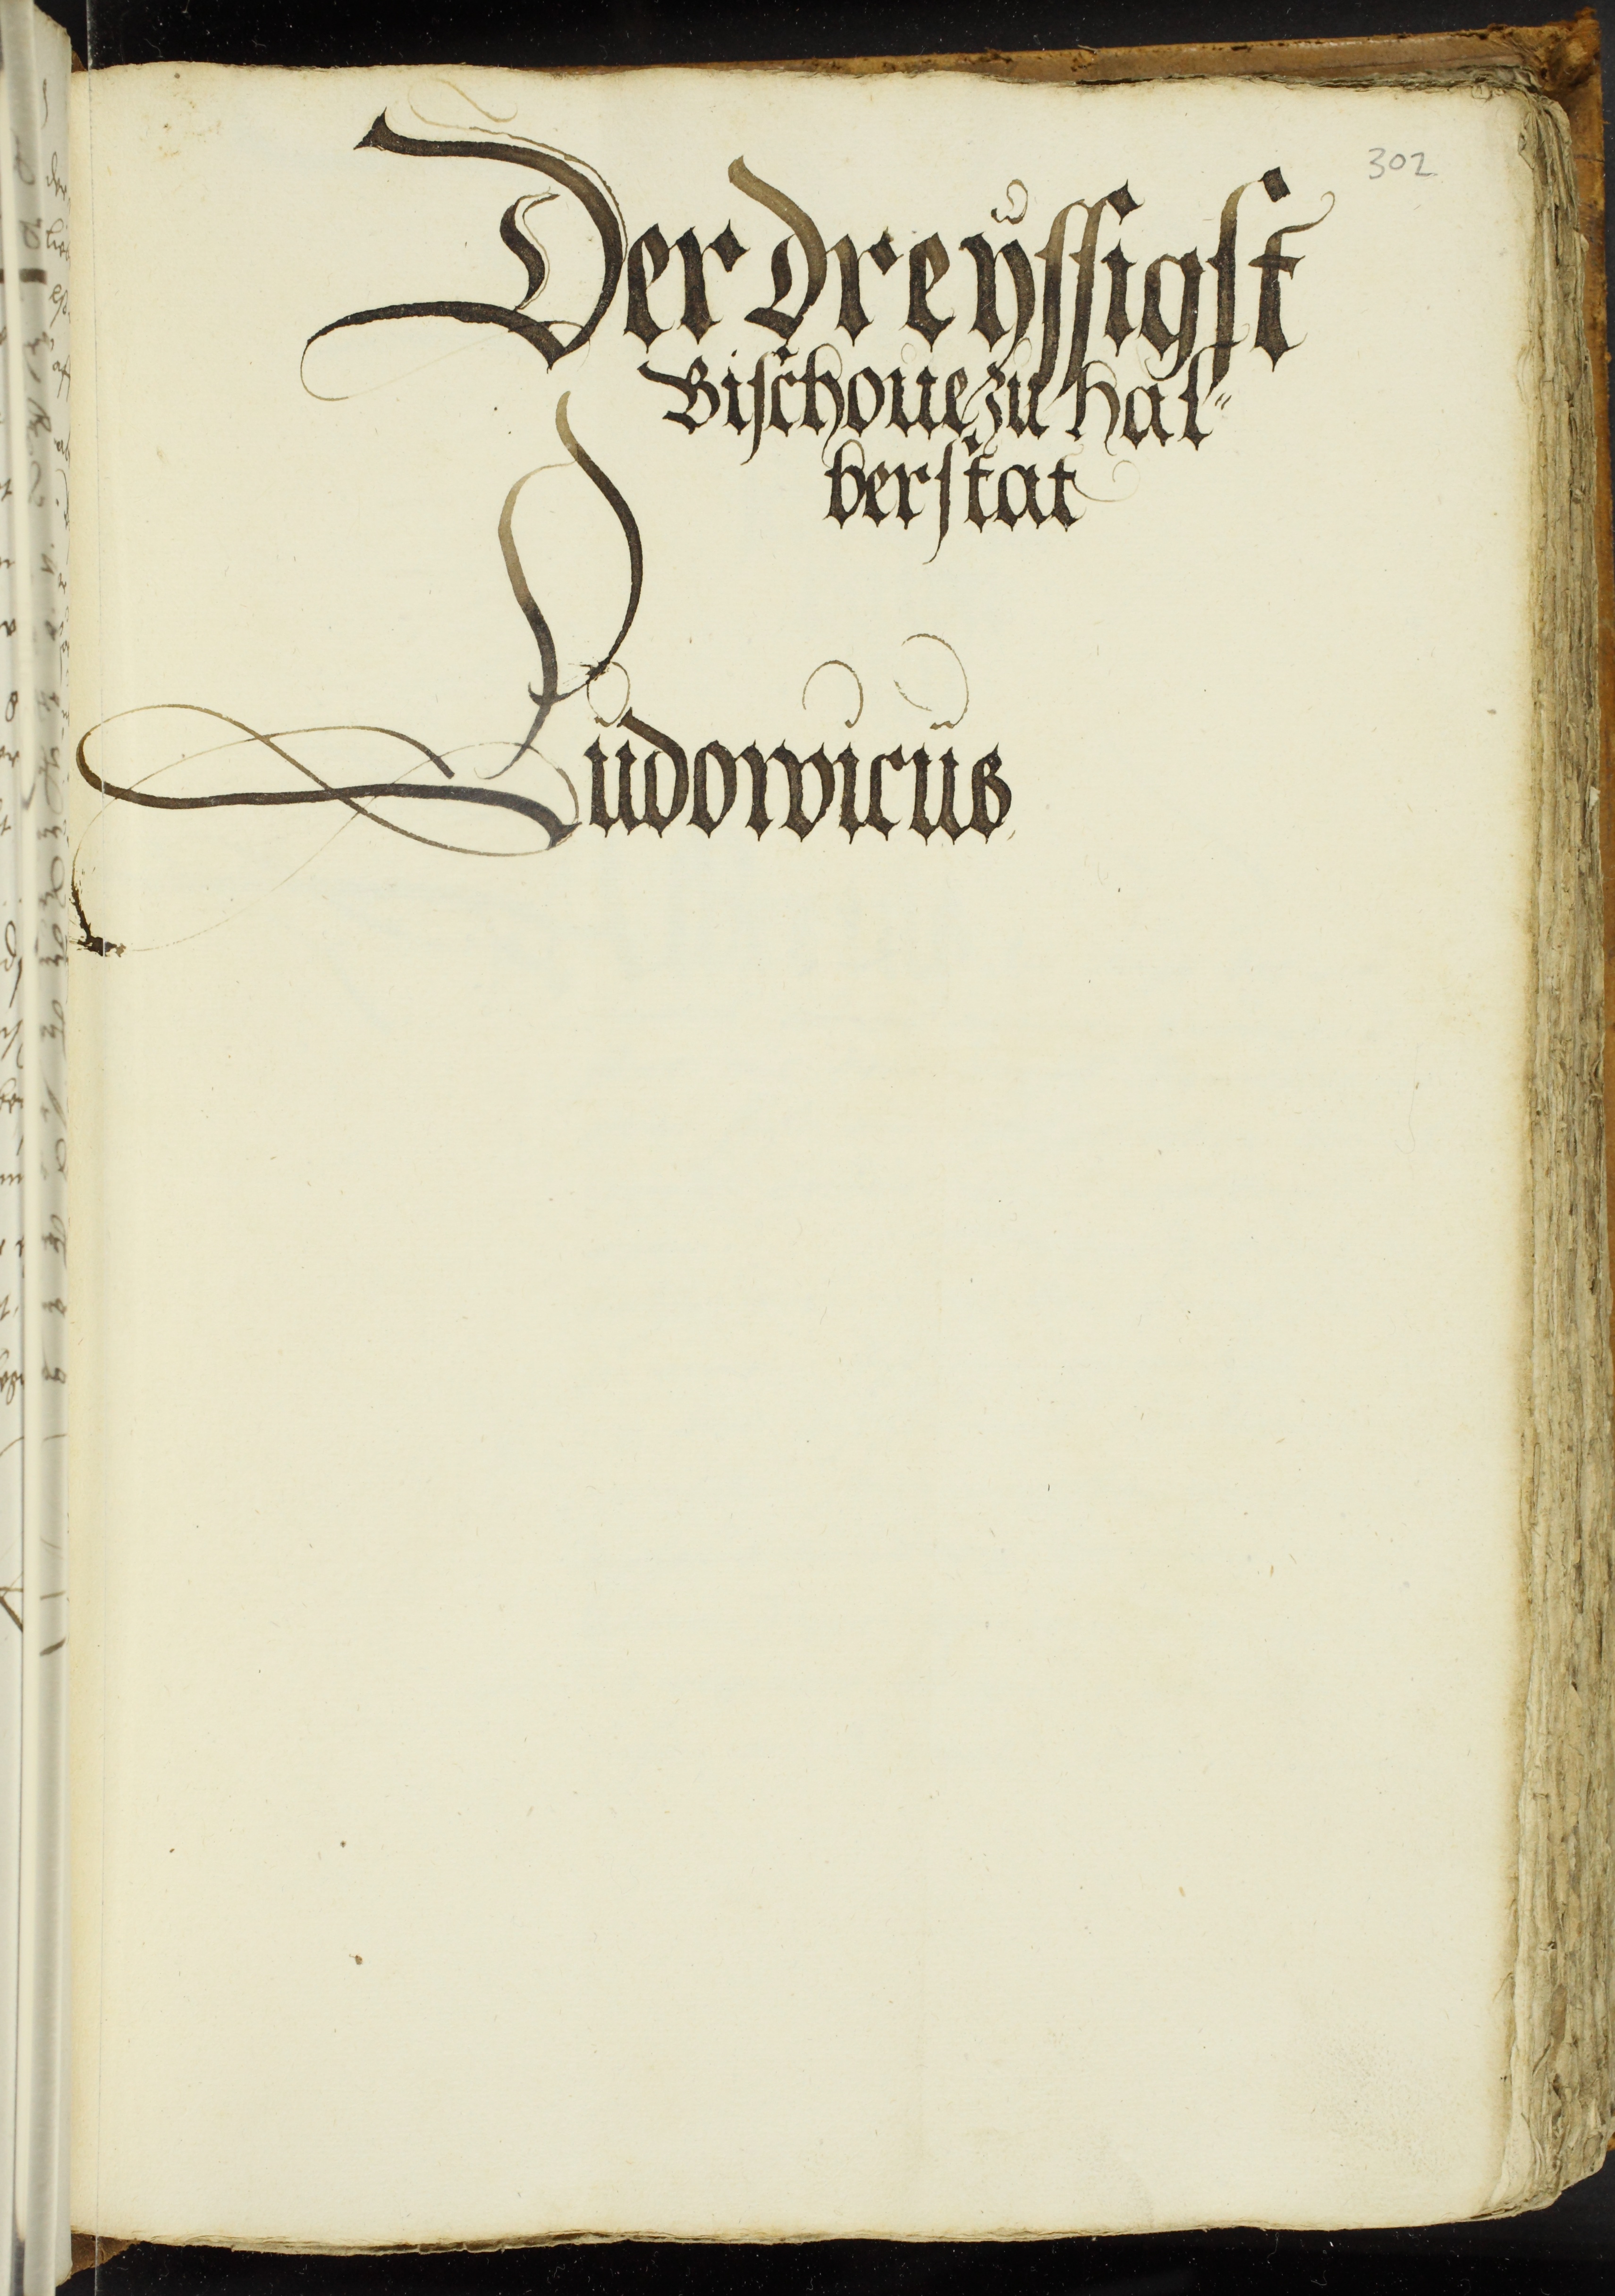 302
Der dreÿssigst
Bischoue zu hal=
berstat
Ludowicus